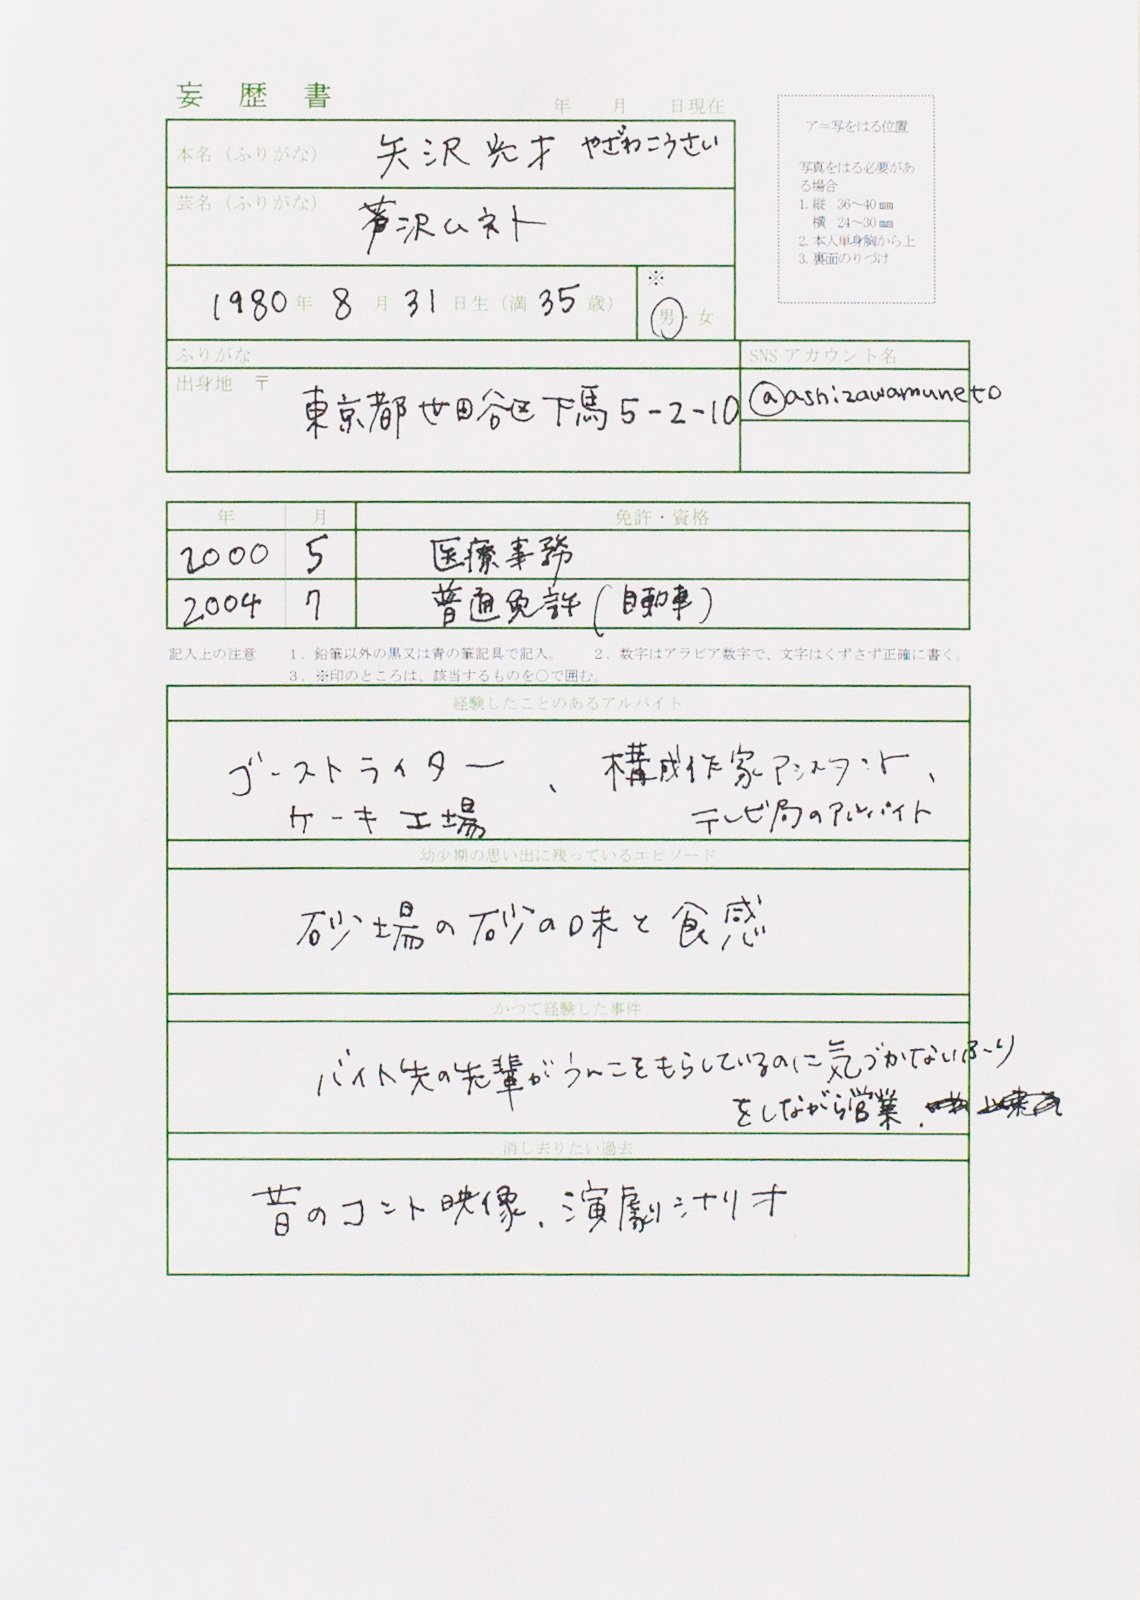 妄歴書
年 月 日現在
本名（ふりがな） 矢沢光才 やざわこうさい
芸名（ふりがな） 芦沢ムネト
1980年 8月 31日生（満 35歳） ※ 男・女
ア＝写をはる位置
写真をはる必要があ
る場合
1. 縦 36～40㎜
横 24～30㎜
2. 本人単身胸から上
3. 裏面のりづけ
ふりがな
出身地 〒 東京都世田谷区下馬5-2-10
SNSアカウント名
@ashizawamuneto
年 月 免許・資格
2000 5 医療事務
2004 7 普通免許(自動車)
記入上の注意 1．鉛筆以外の黒又は青の筆記具で記入。 2．数字はアラビア数字で、文字はくずさず正確に書く。
3．※印のところは、該当するものを○で囲む。
経験したことのあるアルバイト
ゴーストライター、構成作家アシスタント、
ケーキ工場 テレビ局のアルバイト
幼少期の思い出に残っているエピソード
砂場の砂の味と食感
かつて経験した事件
バイト先の先輩がうんこをもらしているのに気づかないふり
をしながら営業．
消し去りたい過去
昔のコント映像、演劇シナリオ